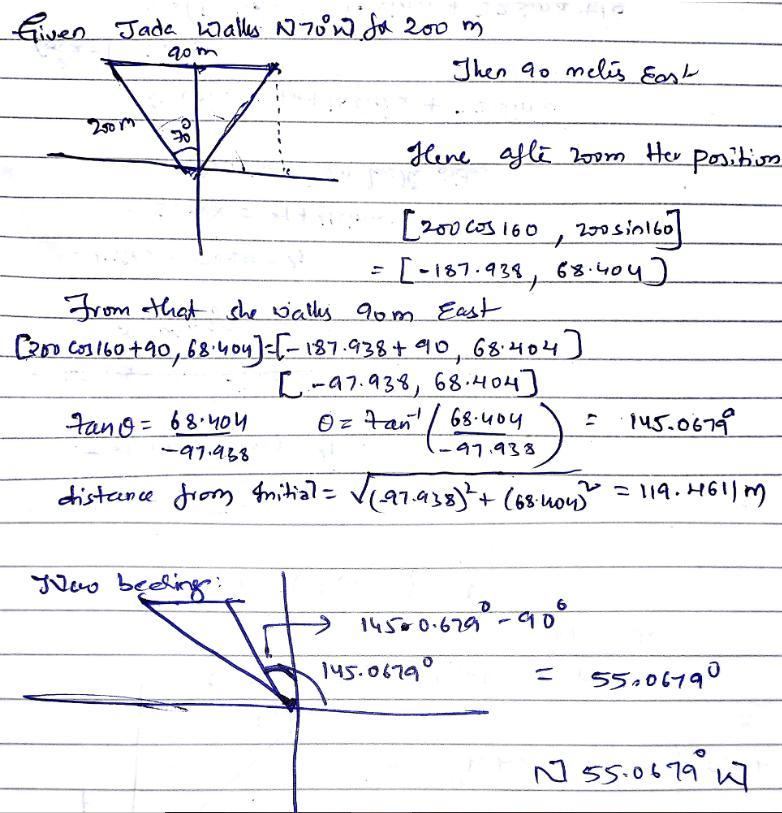 Given Jada walks N70°W for 200 m
90m
Then 90 meters East
200m
70°
Here after 200m Her position
[200 cos 160 , 200 sin 160]
= [-187.938, 68.404]
From that she walks 90m East
[200 cos 160 + 90, 68.404] = [-187.938 + 90, 68.404]
[-97.938, 68.404]
tan θ = 68.404 / -97.938 θ = tan⁻¹ (68.404 / -97.938) = 145.0679°
distance from initial = √(-97.938)² + (68.404)² = 119.4611 m
New bearings:
145.0.679° - 90°
145.0679°
= 55.0679°
N 55.0679° W